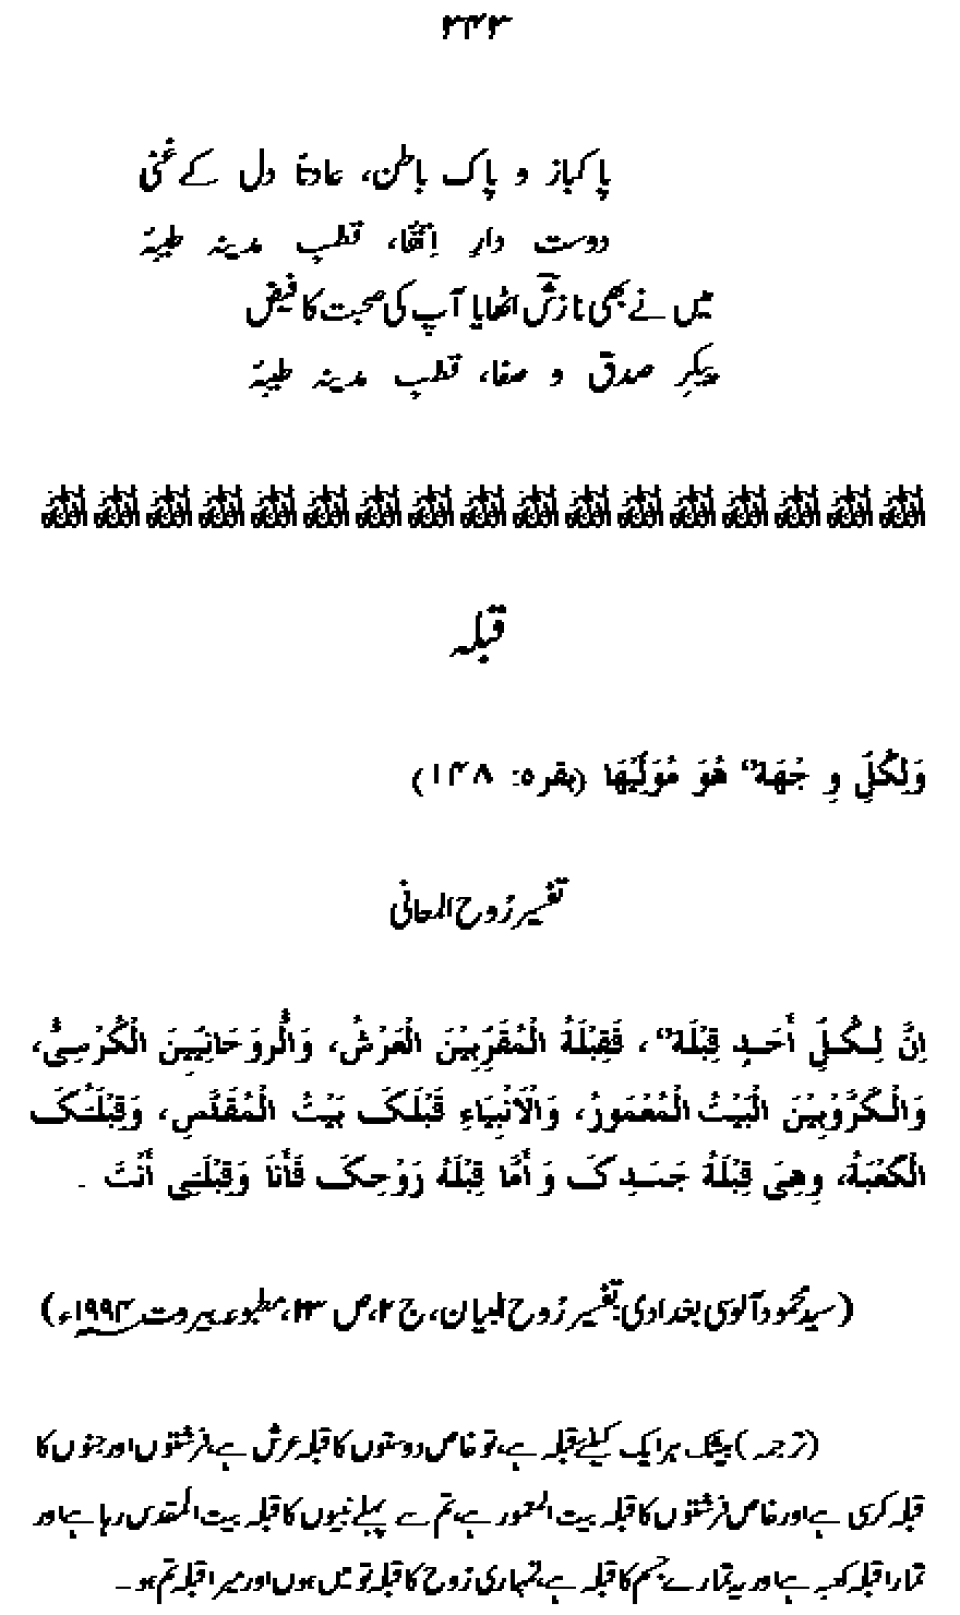 ۳۴۳
پاکباز و پاک باطن، عادتاً دل کے غنی
دوست دارِ اتّقا، قطبِ مدینہ طیبہ
میں نے بھی نازشؔ اٹھایا آپ کی صحبت کا فیض
پیکرِ صدق و صفا، قطبِ مدینہ طیبہ
قبلہ
وَلِكُلِّ وِ جُهَة" هُوَ مُوَلِّيْهَا (بقره: ۱۴۸)
تفسیر رُوح المعانی
اِنَّ لِكُلِّ أَحَدٍ قِبْلَة"، فَقِبْلَةُ الْمُقَرَّبِيْنَ الْعَرْشُ، وَالُّروَحَانِيِيّنَ الْكُرْسِيُّ،
وَالْكَرُّوْبِيْنَ الْبَيْتُ الْمُعْمَورُ، وَالْاَنْبِيَاءِ قَبْلَكَ بَيْتُ الْمُقَدَّسِ، وَقِبْلَتُكَ
الْكَعْبَةُ، وِهِيَ قِبْلَةُ جَسَدِكَ وَ أَمَّا قِبْلَةُ رَوْحِكَ فَأَنَا وَقِبْلَتِي أَنْتَ ۔
(سید محمود آلوسی بغدادی: تفسیر رُوح البیان، ج ۲، ص ۲۳، مطبوعہ بیروت ۱۹۹۴ء)
(ترجمہ) بیشک ہر ایک کیلئے قبلہ ہے، تو خاص دوستوں کا قبلہ عرش ہے، فرشتوں اور جنوں کا
قبلہ کرسی ہے اور خاص فرشتوں کا قبلہ بیت المعمور ہے، تم سے پہلے نبیوں کا قبلہ بیت المقدس رہا ہے اور
تمہارا قبلہ کعبہ ہے اور یہ تمہارے جسم کا قبلہ ہے، تمہاری رُوح کا قبلہ تو میں ہوں اور میرا قبلہ تم ہو۔